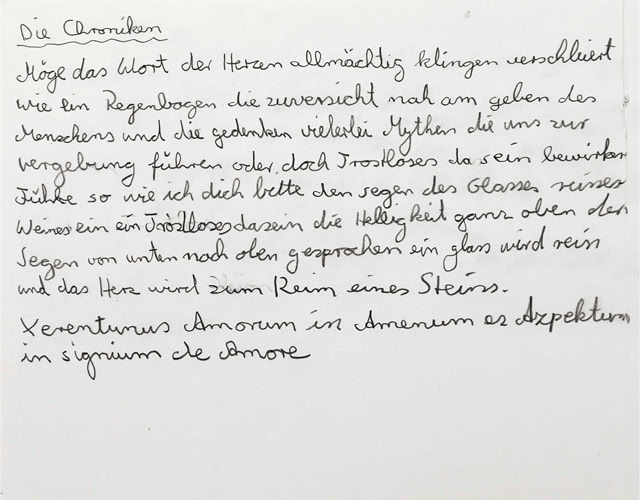 Die Chroniken
Möge das Wort der Herzen allmächtig klingen verschleiert
wie ein Regenbogen die zuversicht nah am geben des
Menschens und die gedenken vielerlei Mythen die uns zur
vergebung führen oder doch Trostloses da sein bewirken
Führe so wie ich dich bitte den segen des Glasses reines
Weines ein ein Trostloses dasein die Helligkeit ganz oben den
Segen von unten nach oben gesprochen ein glass wird rein
und das Herz wird zum Reim eines Steins.
Xerentunus Amorum in Amenum es Azpektum
in signium de Amore